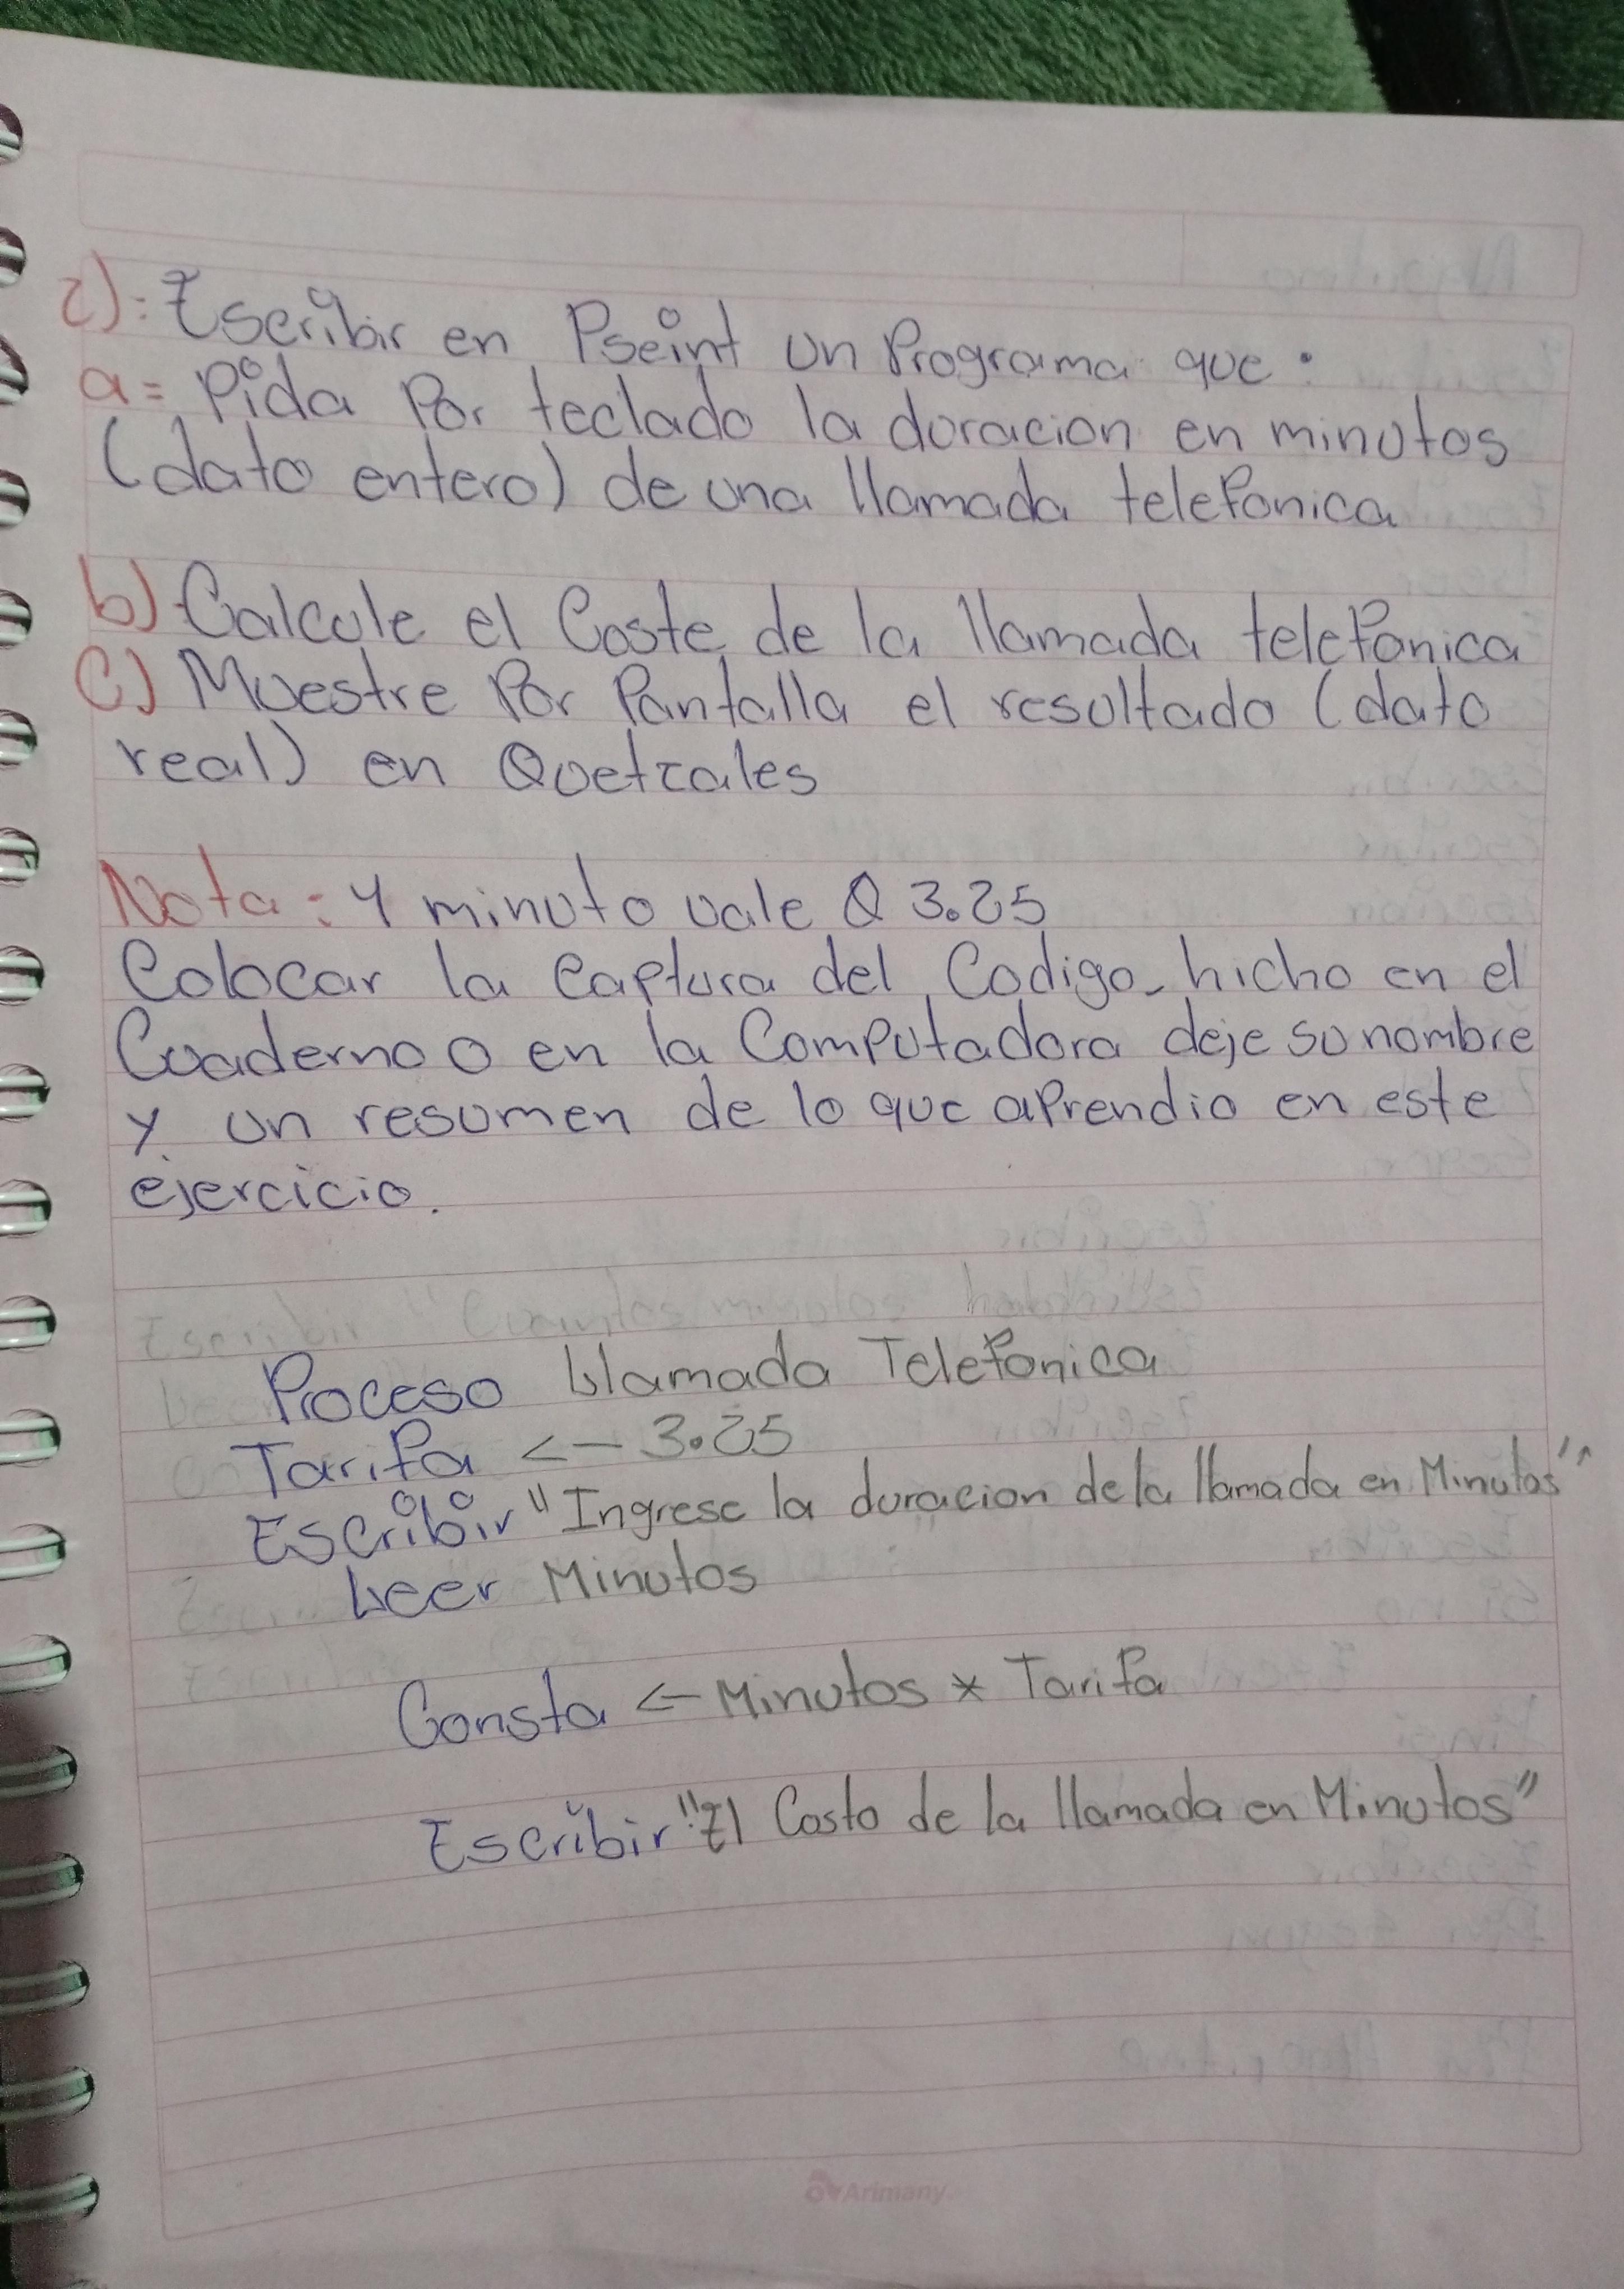 2): Escribir en Pseint un Programa que:
a= Pida Por teclado la duracion en minutos
(dato entero) de una llamada telefonica
b) Calcule el Coste de la llamada telefonica
C) Muestre Por Pantalla el resultado (dato
real) en Quetzales
Nota: 1 minuto vale Q 3.25
Colocar la Captura del Codigo hicho en el
Cuaderno o en la Computadora deje su nombre
y un resumen de lo que aprendio en este
ejercicio.
Escribir "Cuantos minutos
Proceso Llamada Telefonica
Tarifa <- 3.25
Escribir "Ingrese la duracion de la llamada en Minutos"
Leer Minutos
Consta <- Minutos * Tarifa
Escribir "El Costo de la llamada en Minutos"
Arimany